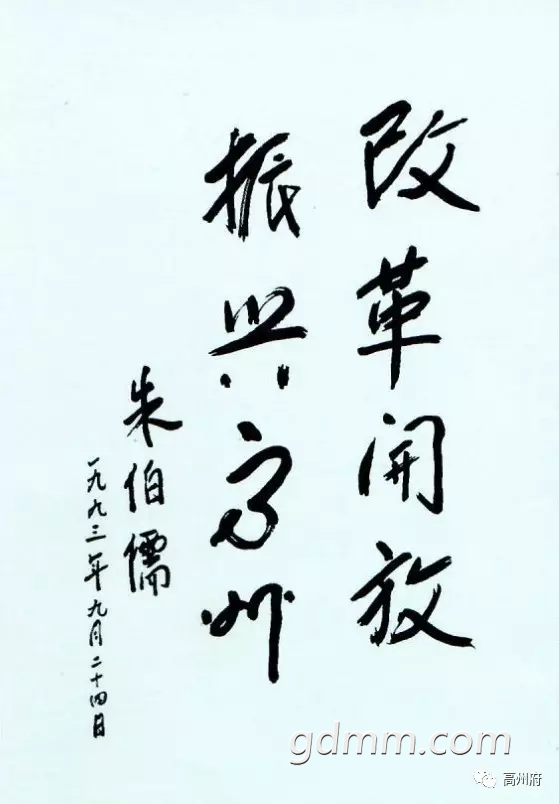 改革开放
振兴高州
朱伯儒
一九九三年九月二十四日
gdmm.com
高州府